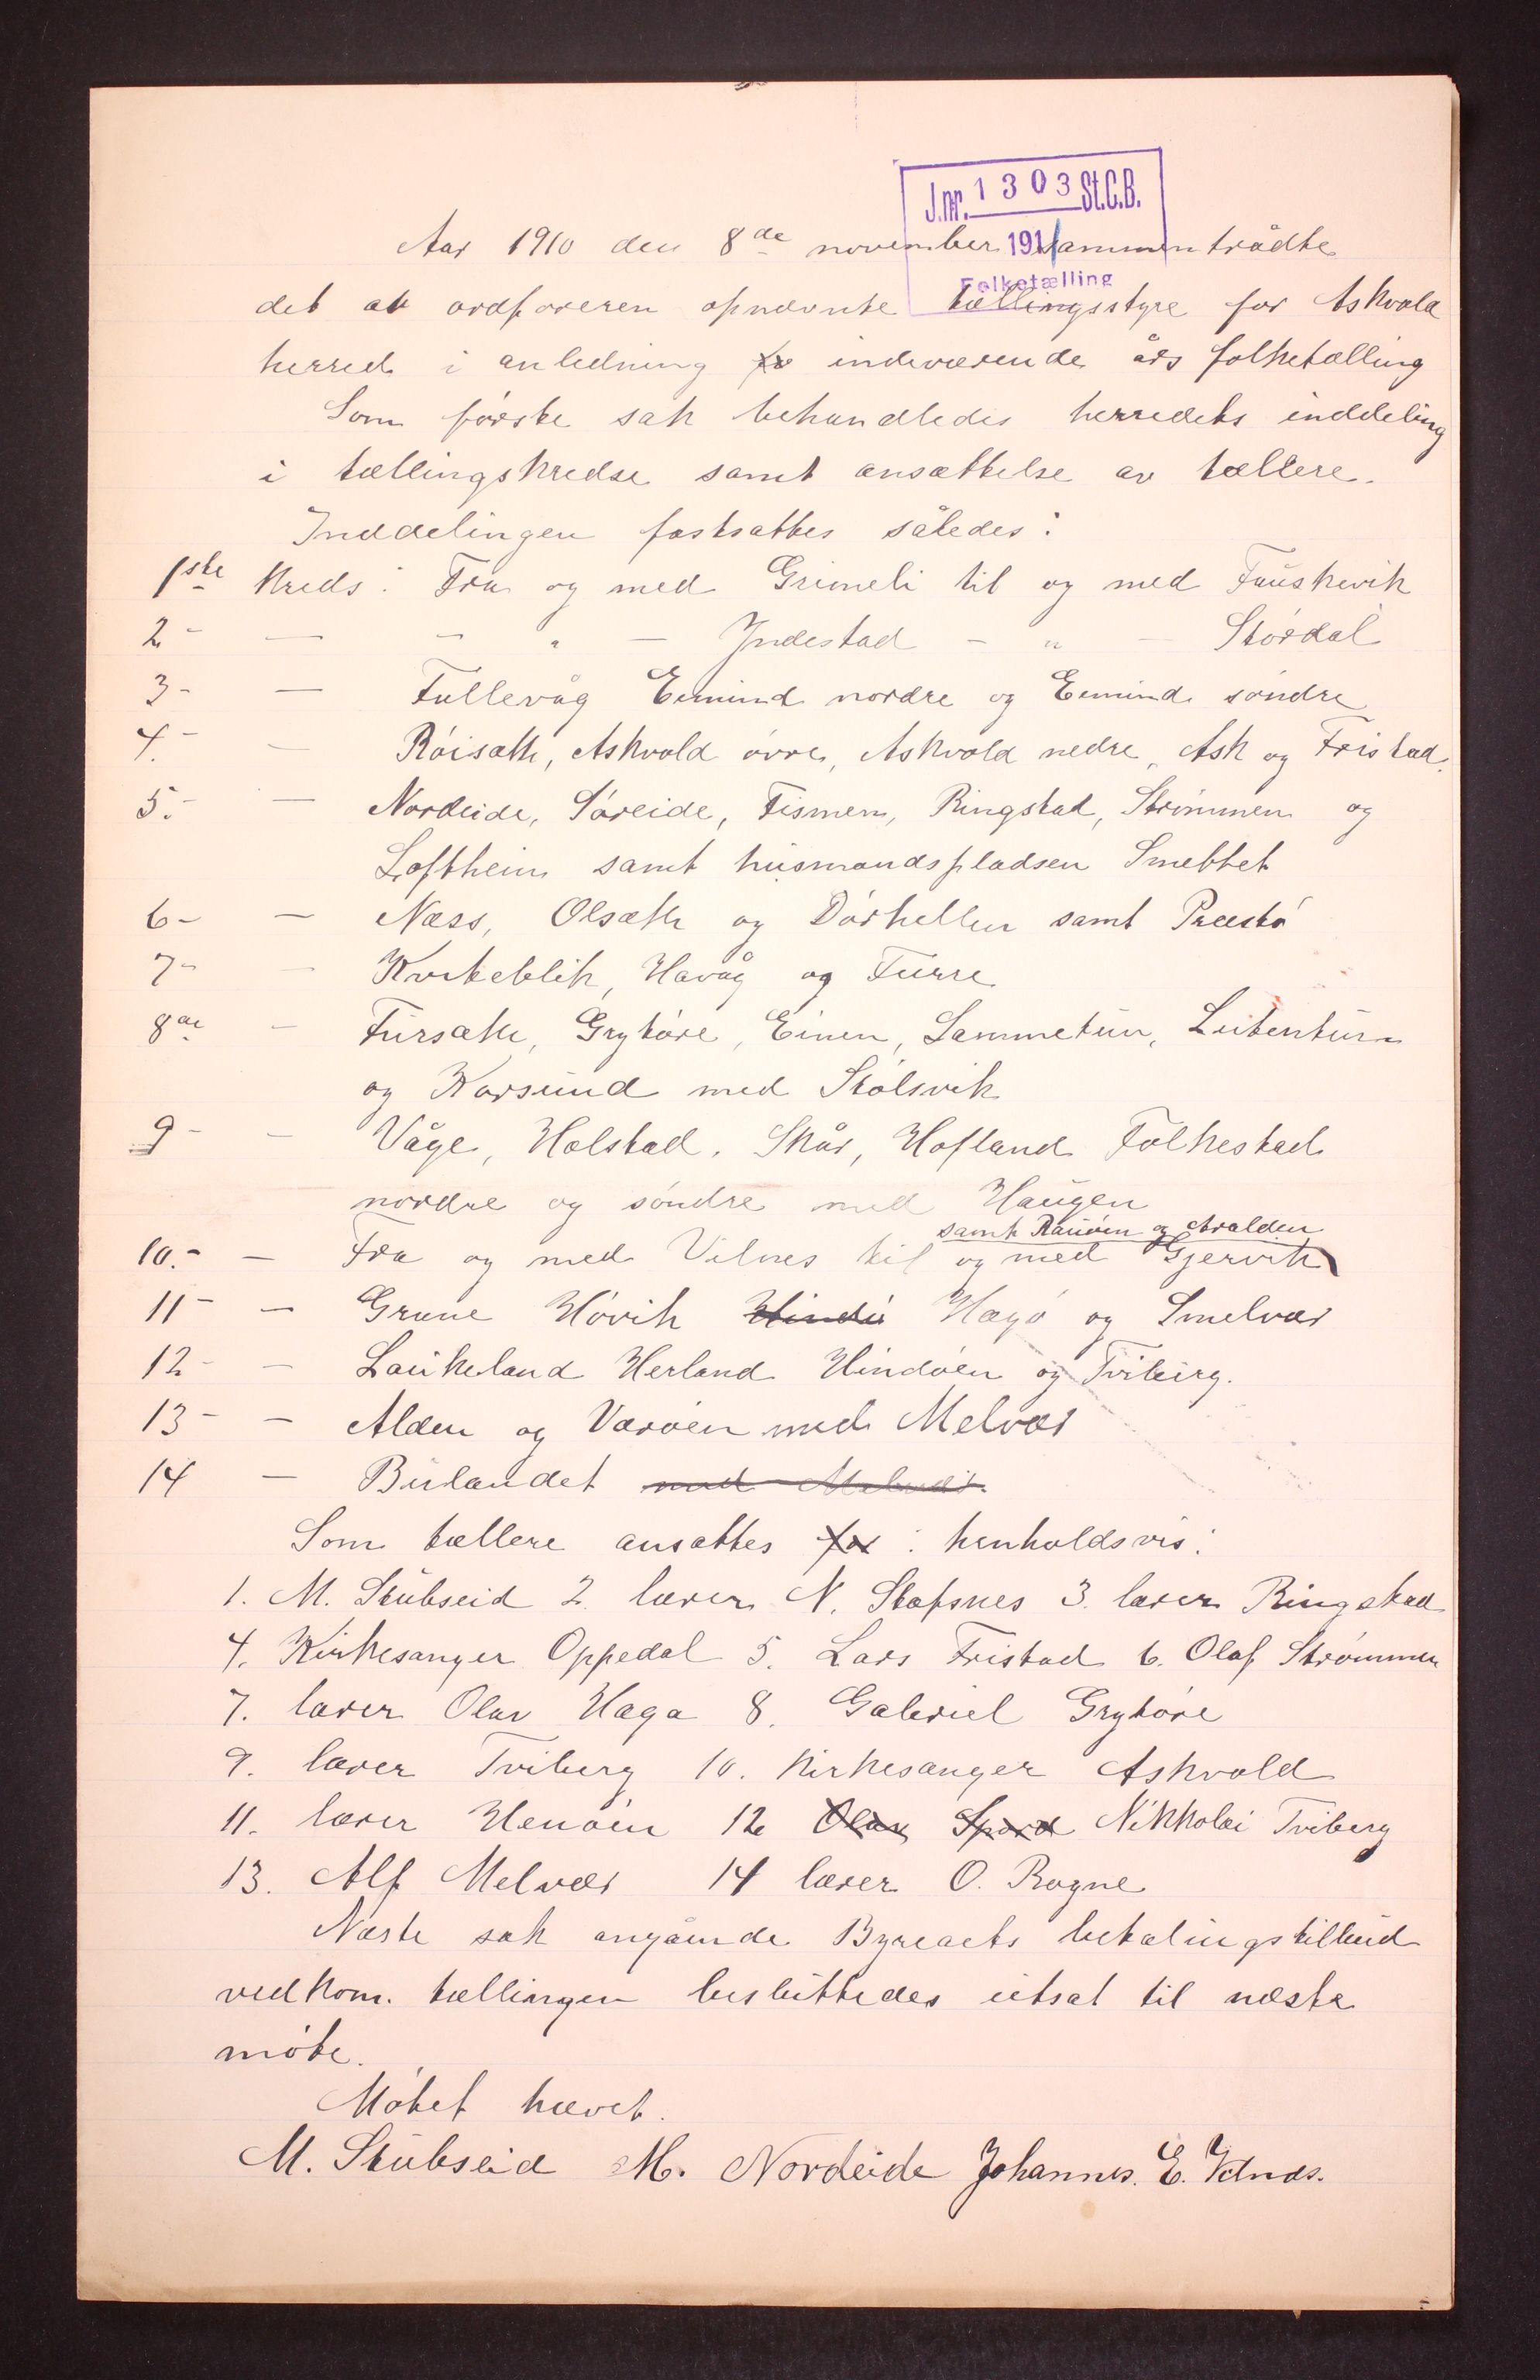 J.nr. 1303 St.C.B.
1911
Folketælling
Aar 1910 den 8de november sammentrådte
det av ordføreren opnævnte tællingsstyre for Askvold
herred i anledning av indeværende års folketælling
Som første sak behandledes herredets inddeling
i tællingskredse samt ansættelse av tællere.
Inddelingen fastsattes således:
1ste Kreds: Fra og med Grimeli til og med Fauskevik
2 - — - " — Indestad - " — Stórdal
3 - — Fullevåg Eemind nordre og Eemind søndre
4. - — Róisæth, Askvold óvre, Askvold nedre, Ask og Fristad.
5. - — Nordeide, Sóreide, Tismen, Ringstad, Strómmen og
Loftheim samt husmandspladsen Smettet
6 - — Næss, Olsæth og Dórhellen samt Præstó
7 - — Kviteblik, Havåg og Furre
8de - Fursæth, Grytóre, Einen, Lammetun, Leitentun
og Korsund med Stólsvik
9 - - Våge, Holstad, Skår, Hofland Folkestad
nordre og sóndre med Haugen
samt Rauóen og Aralden
10. - — Fra og med Vilnes til og med Gjervik
11 - — Grane Hóvik Hindó Hægó og Smelvær
12 - — Laukeland Herland Hindóen og Tviberg.
13 - — Alden og Væróen med Melvær
14 — Bulandet med Melvær.
Som tællere ansattes for : henholdsvis:
1. M. Stubseid 2. lærer N. Stafsnes 3. lærer Ringstad
4. Kirkesanger Oppedal 5. Lars Fristad 6. Olaf Strømmen
7. lærer Olav Haga 8. Gabriel Grytóre
9. lærer Tviberg 10. Kirkesanger Askvold
11. lærer Henóen 12 Olav Spord Nikkolai Tviberg
13. Alf Melvær 14 lærer O. Rogne
Næste sak angående Byreaets betalingstilbud
vedkom. tællingen besluttedes utsat til næste
móte.
Mótet hævet.
M. Stubseid M. Nordeide Johannes. E.